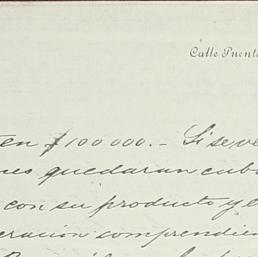 Calle Puente
ten $100000.- Si se ve
nes quedaran cub
con su producto y e
eración comprendien